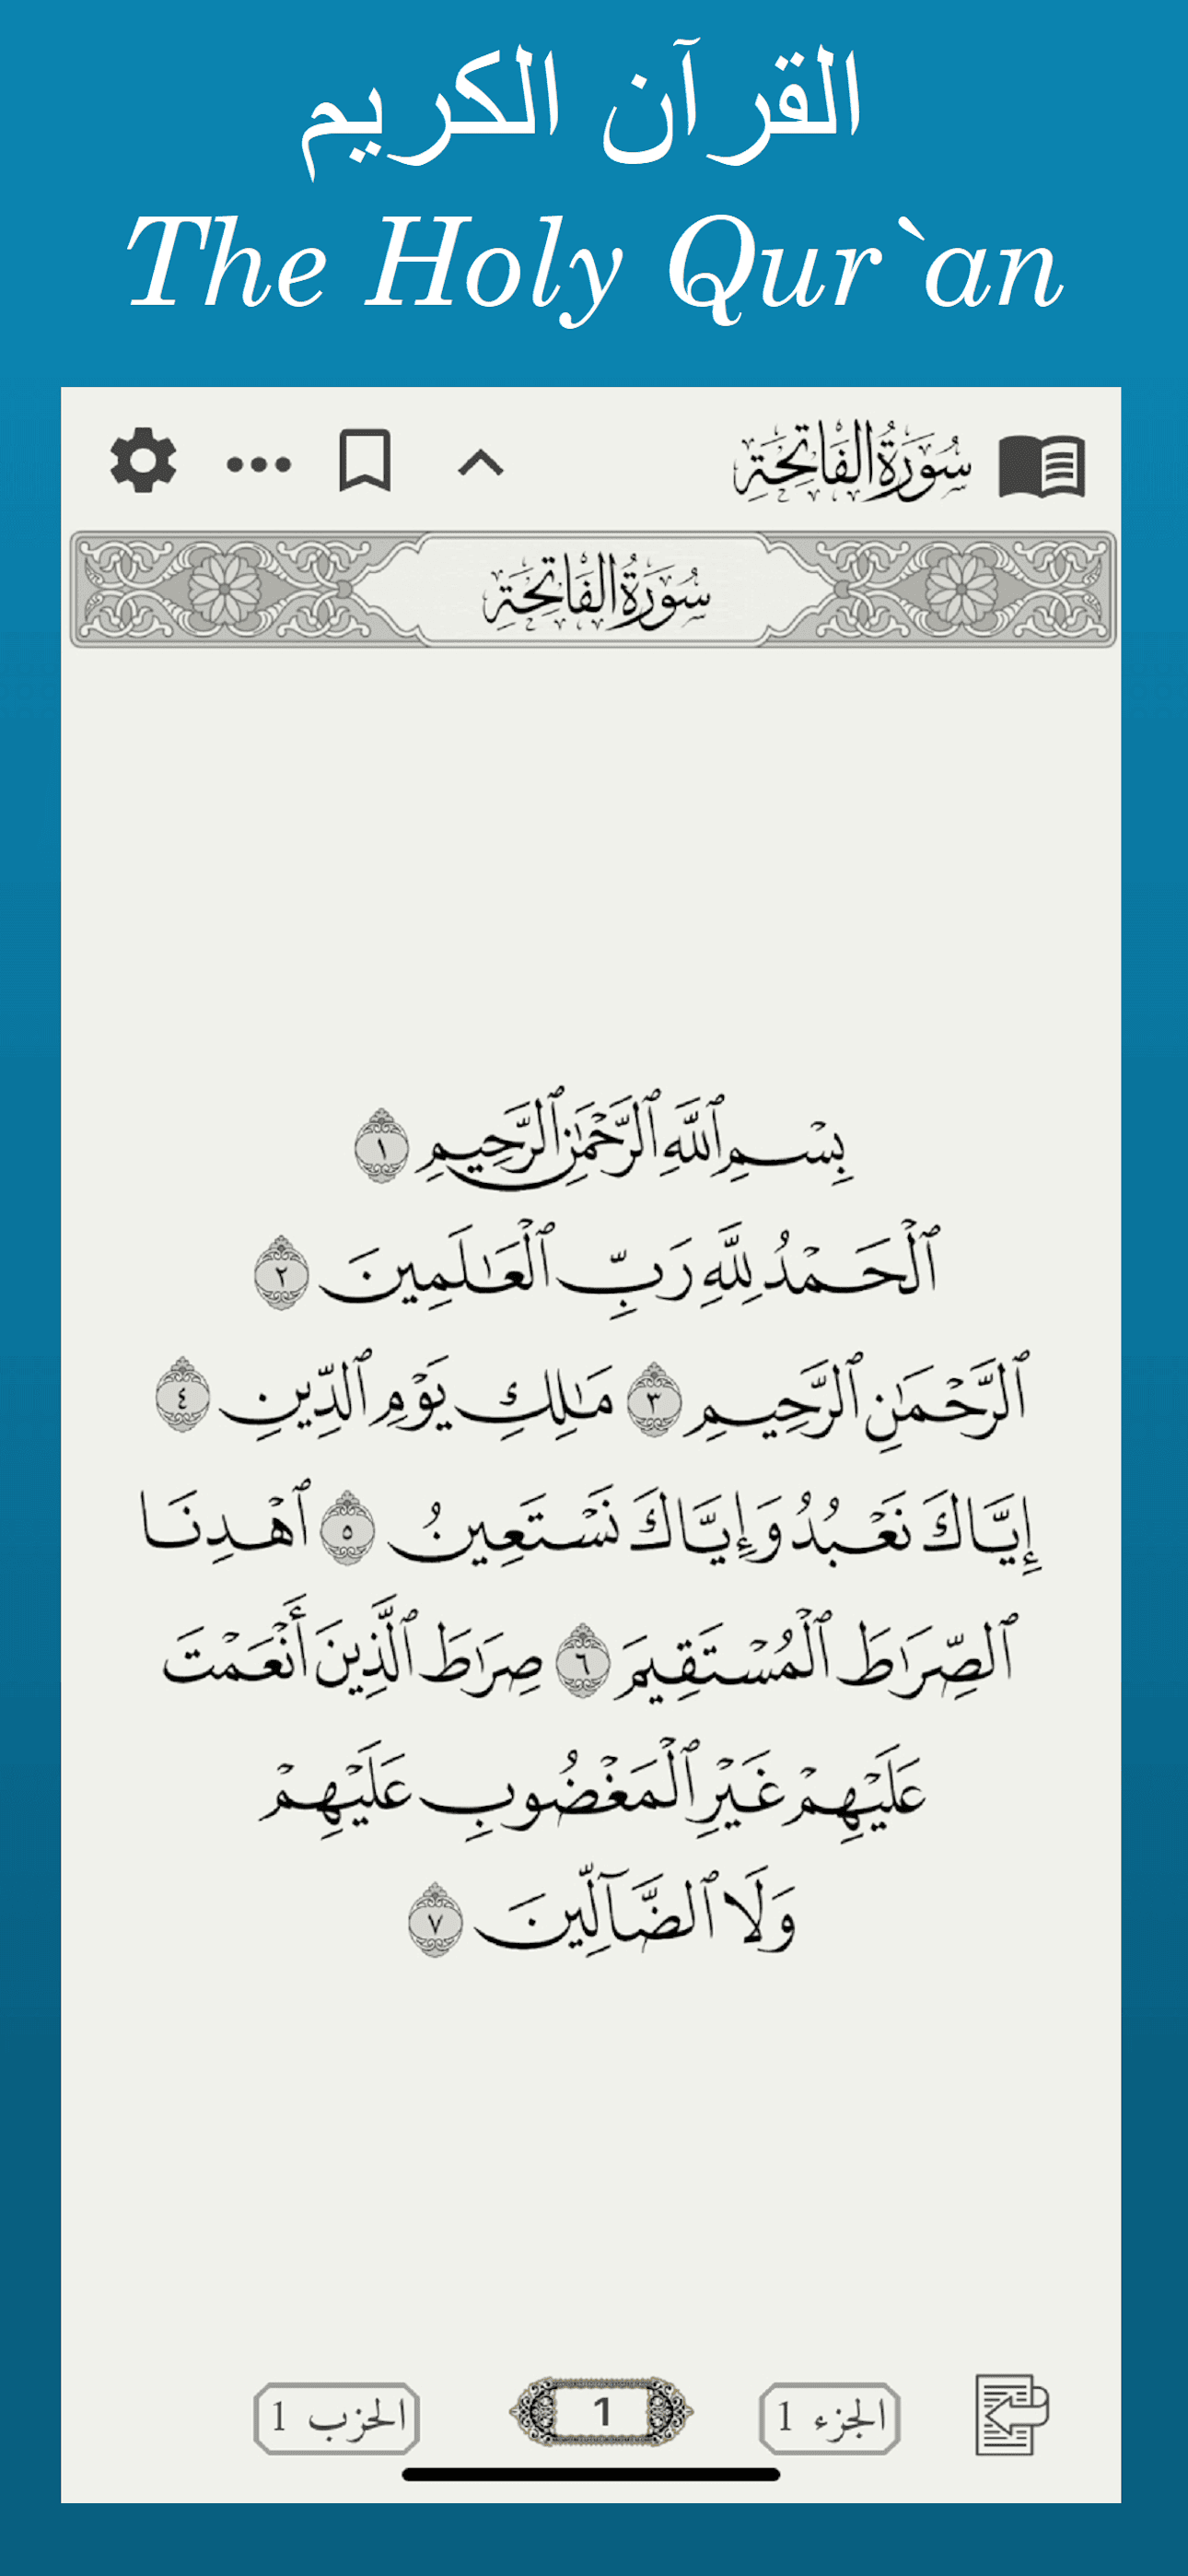 القرآن الكريم
The Holy Qur`an
سُورَةُ الفَاتِحَةِ
سُورَةُ الفَاتِحَةِ
بِسْمِ ٱللَّهِ ٱلرَّحْمَٰنِ ٱلرَّحِيمِ ١
ٱلْحَمْدُ لِلَّهِ رَبِّ ٱلْعَٰلَمِينَ ٢
ٱلرَّحْمَٰنِ ٱلرَّحِيمِ ٣ مَٰلِكِ يَوْمِ ٱلدِّينِ ٤
إِيَّاكَ نَعْبُدُ وَإِيَّاكَ نَسْتَعِينُ ٥ ٱهْدِنَا
ٱلصِّرَٰطَ ٱلْمُسْتَقِيمَ ٦ صِرَٰطَ ٱلَّذِينَ أَنْعَمْتَ
عَلَيْهِمْ غَيْرِ ٱلْمَغْضُوبِ عَلَيْهِمْ
وَلَا ٱلضَّآلِّينَ ٧
الجزء 1
1
الحزب 1